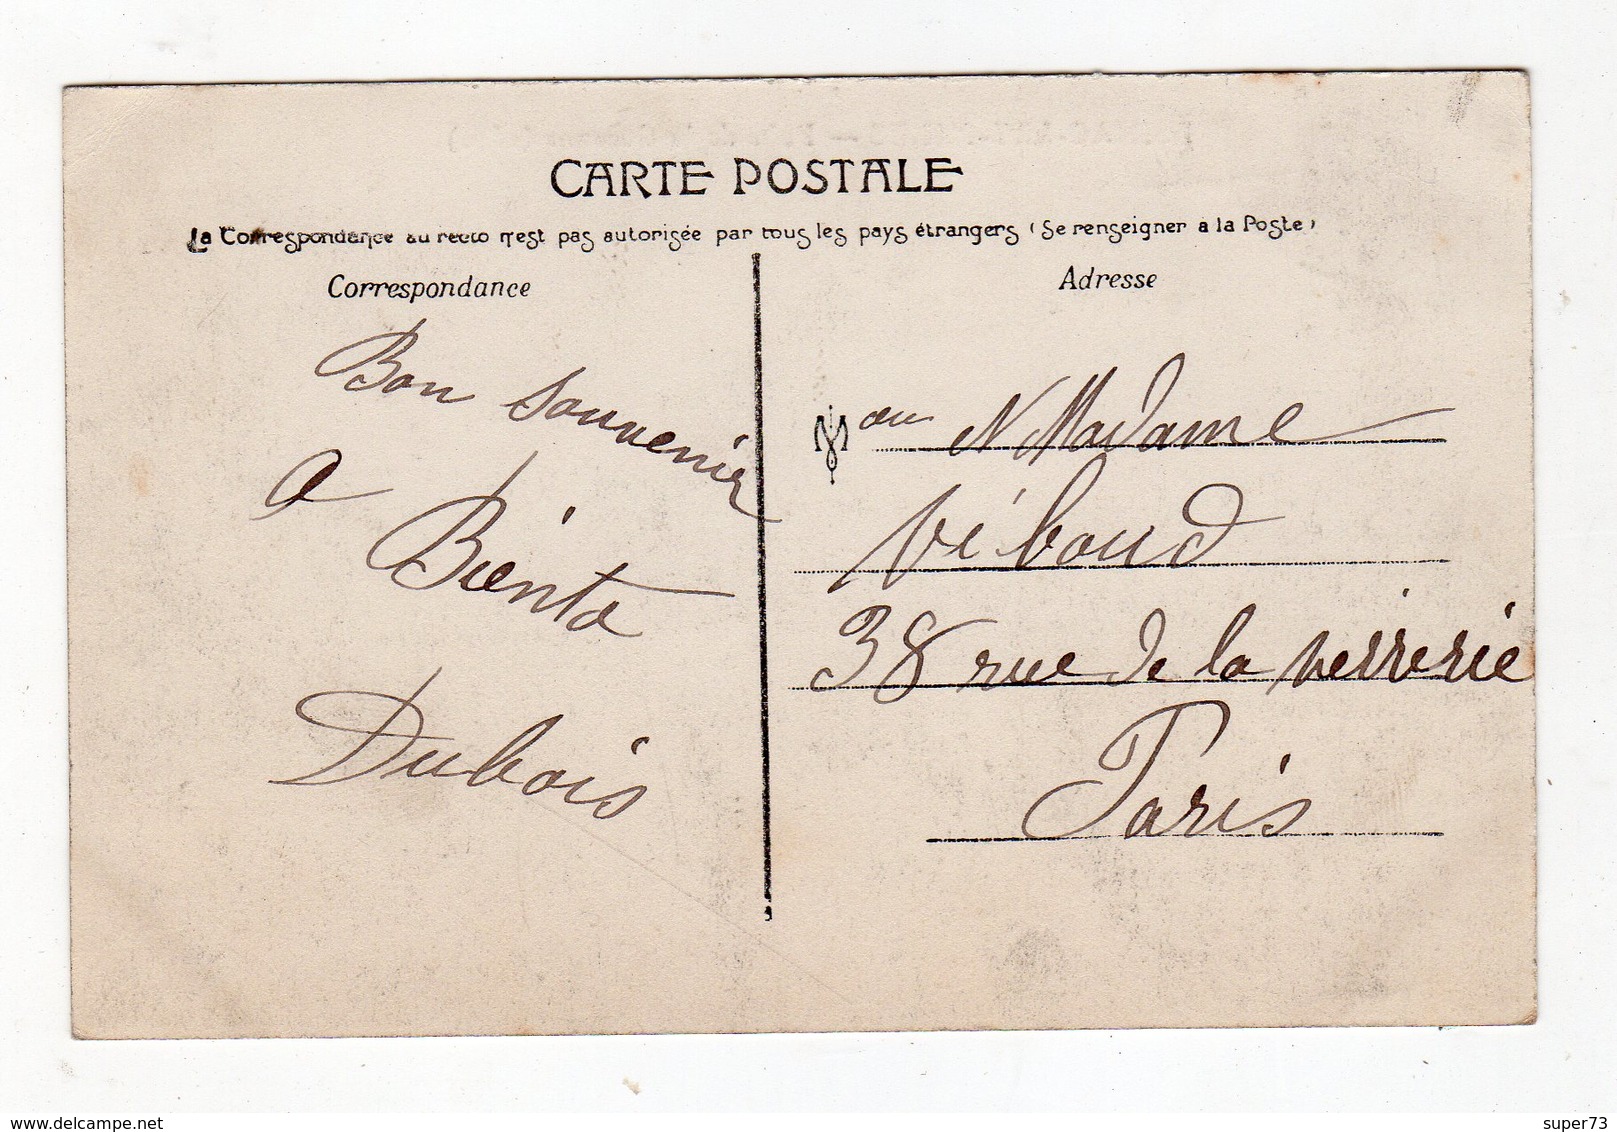 CARTE POSTALE
La Correspondance au recto n'est pas autorisée par tous les pays étrangers (Se renseigner à la Poste)
Correspondance
Bon Souvenir
a Biento
Dubois
Adresse
M
Madame
Vé boud
38 rue de la verrerie
Paris
www.delcampe.net
super73